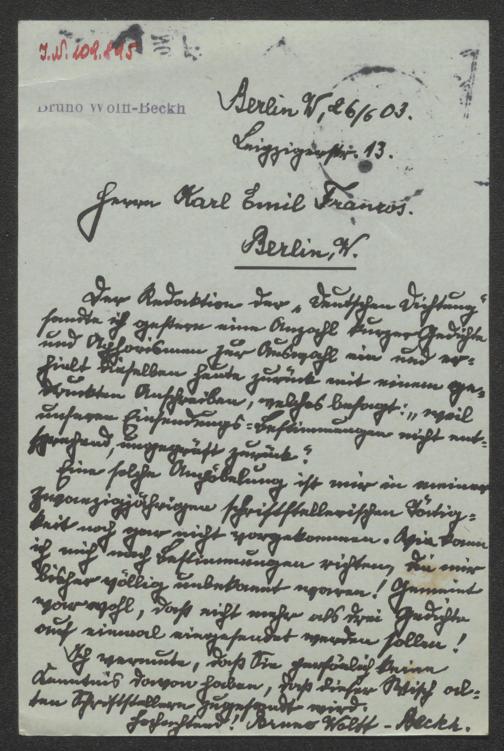 J.N. 109.895
Bruno Wolff-Beckh
Berlin W, 26/6 03.
Leipzigerstr. 13.
Herrn Karl Emil Franzos.
Berlin, W.
Der Redaktion der „Deutschen Dichtung"
sandte ich gestern eine Anzahl kurzer Gedichte
und Aphorismen zur Auswahl ein und er-
hielt dieselben heute zurück mit einem ge-
druckten Anschreiben, welches besagt: „weil
unseren Einsendungs-Bestimmungen nicht ent-
sprechend, ungeprüft zurück."
Eine solche Anpöbelung ist mir in meiner
zwanzigjährigen schriftstellerischen Tätig-
keit noch gar nicht vorgekommen. Wie kann
ich mich nach Bestimmungen richten, die mir
bisher völlig unbekannt waren! Gemeint
war wohl, daß nicht mehr als drei Gedichte
auf einmal eingesendet werden sollen!
Ich vermute, daß Sie persönlich keine
Kenntnis davon haben, daß dieser Wisch al-
ten Schriftstellern zugesandt wird.
Hochachtend! Bruno Wolff-Beckh.